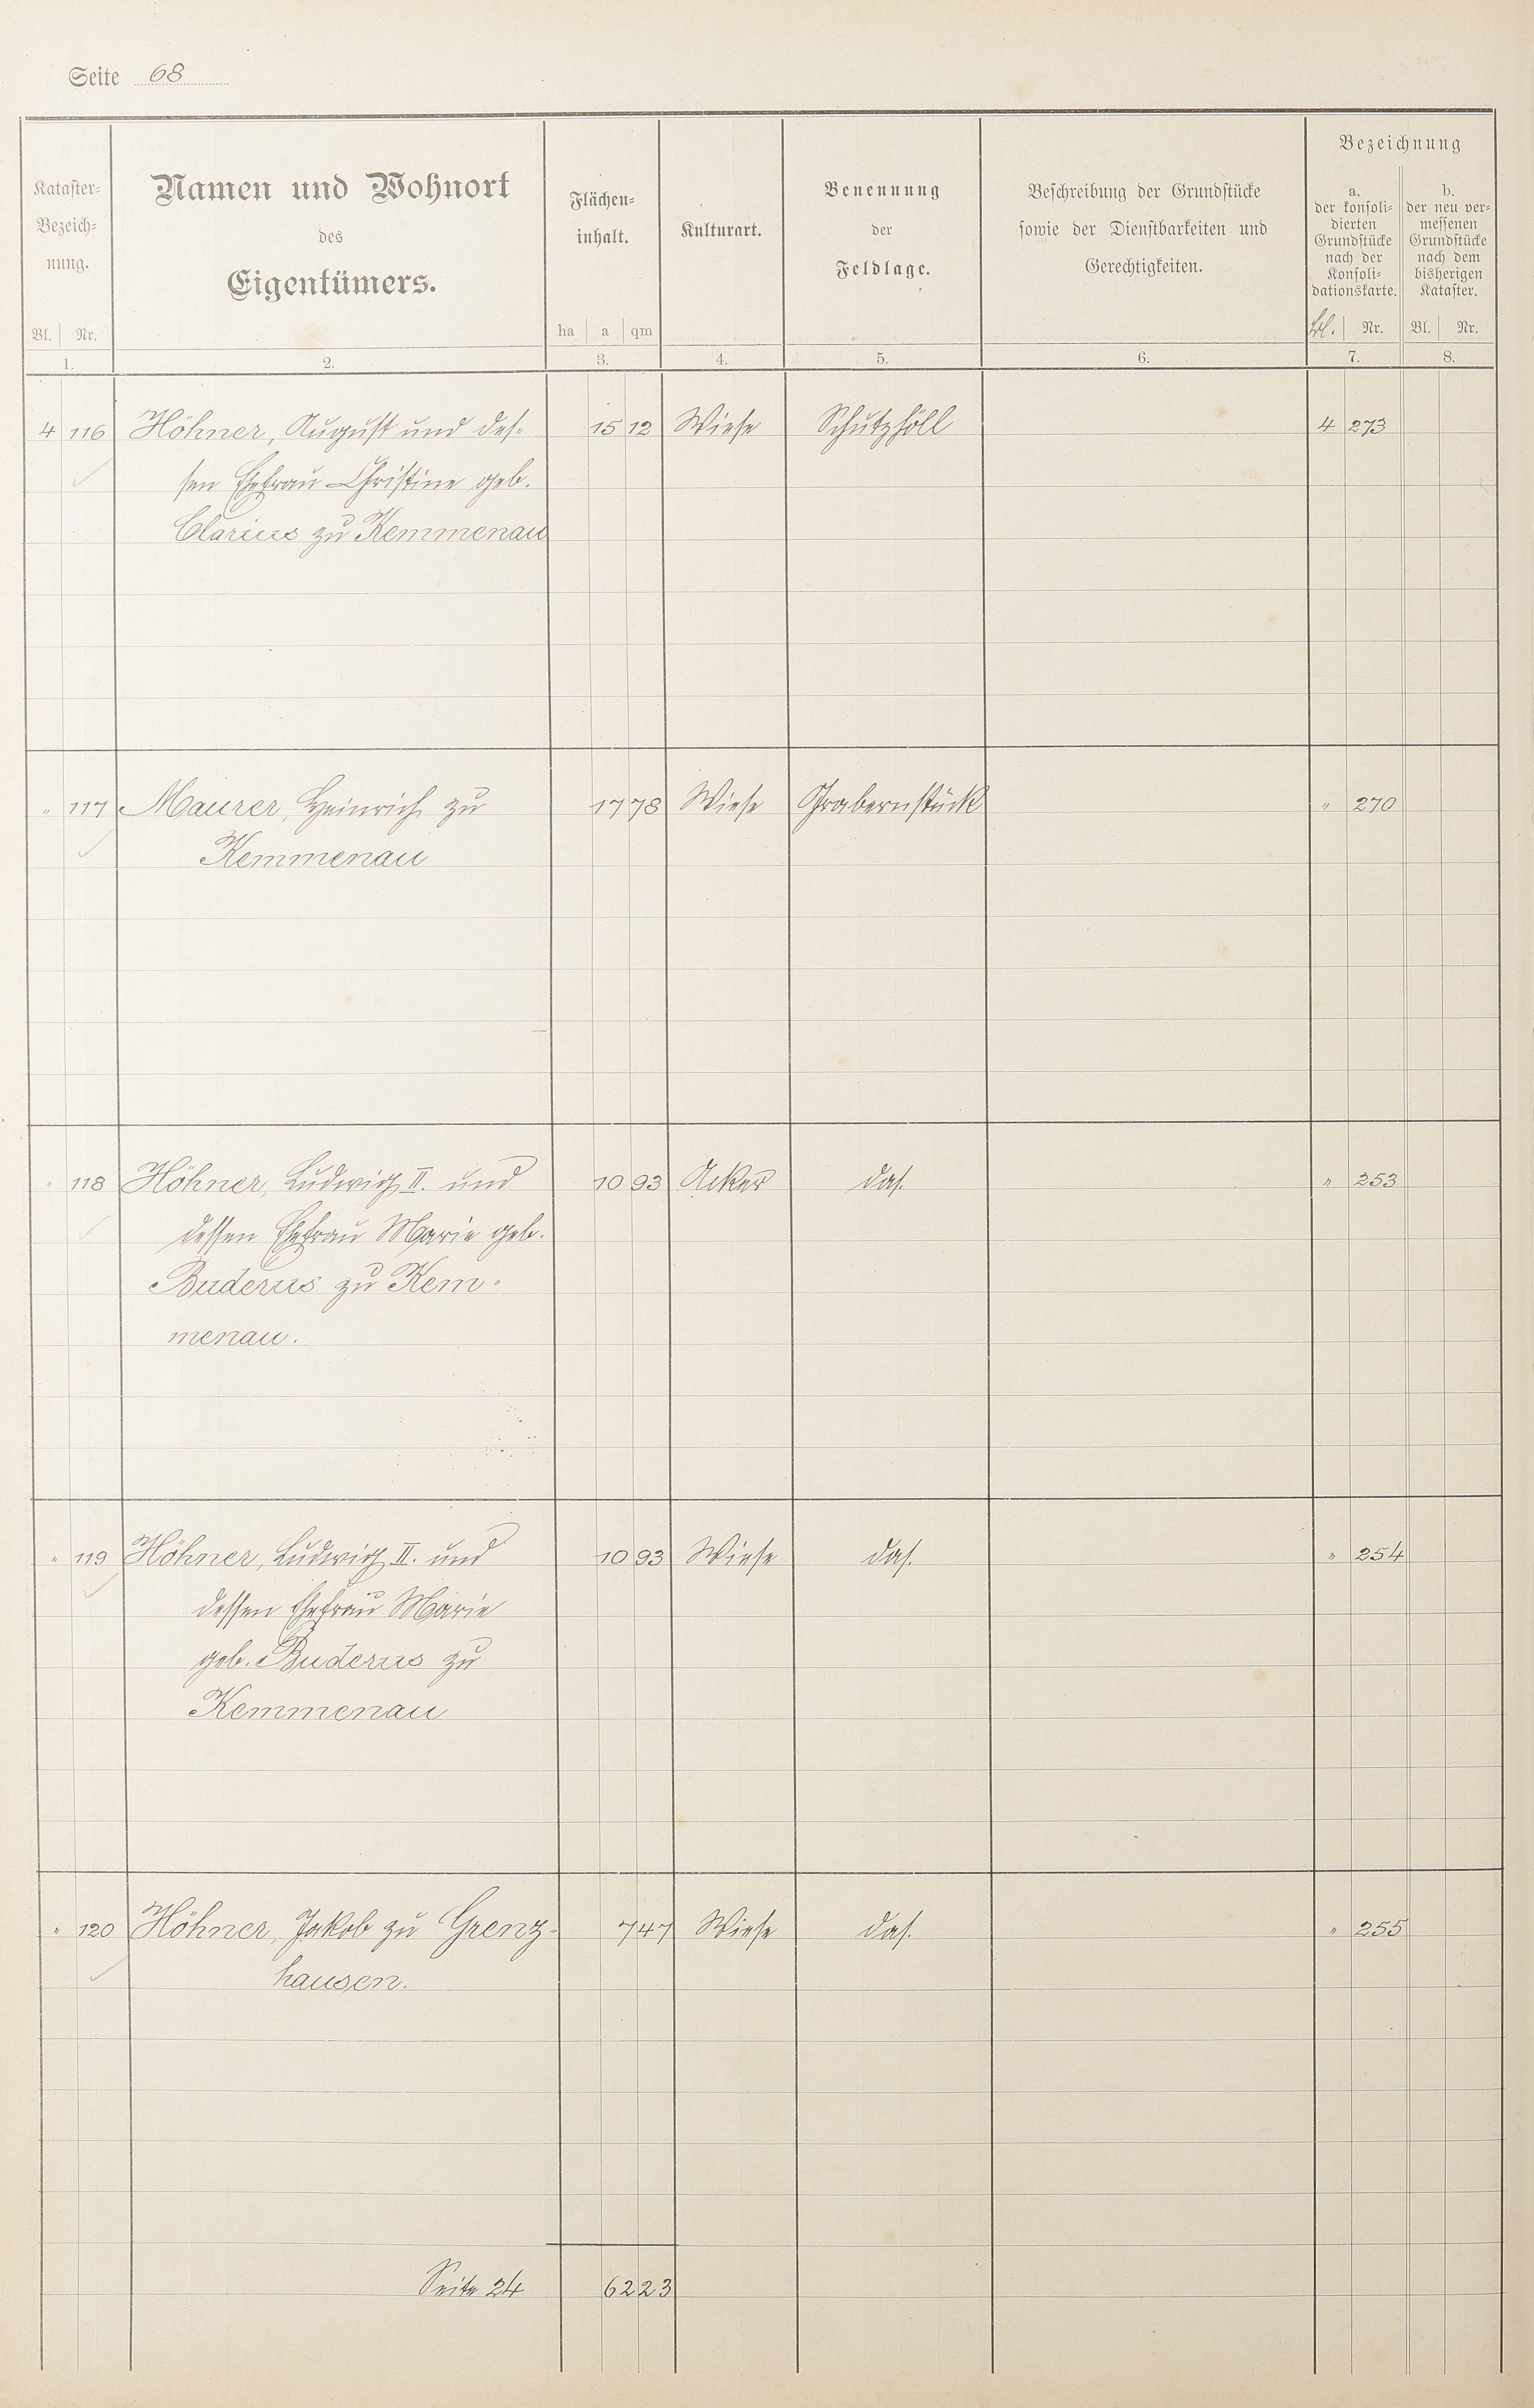 Seite 68
Kataster-
Bezeich-
nung.
Bl. Nr.
1.
Namen und Wohnort
des
Eigentümers.
2.
Flächen-
inhalt.
ha a qm
3.
Kulturart.
4.
Benennung
der
Feldlage.
5.
Beschreibung der Grundstücke
sowie der Dienstbarkeiten und
Gerechtigkeiten.
6.
Bezeichnung
a.
der konsoli-
dierten
Grundstücke
nach der
Konsoli-
dationskarte.
Bl. Nr.
7.
b.
der neu ver-
messenen
Grundstücke
nach dem
bisherigen
Kataster.
Bl. Nr.
8.
4 116 Höhner, August und des- 15 12 Wiese Schutzhöll 4 273
sen Ehefrau Christine geb.
Clarius zu Kemmenau
" 117 Maurer, Heinrich zu 17 78 Wiese Grabernstück " 270
Kemmenau
" 118 Höhner, Ludwig II. und 10 93 Acker das. " 253
dessen Ehefrau Marie geb.
Buderus zu Kem-
menau.
" 119 Höhner, Ludwig II. und 10 93 Wiese das. " 254
dessen Ehefrau Marie
geb. Buderus zu
Kemmenau
" 120 Höhner, Jakob zu Grenz- 7 47 Wiese das. " 255
hausen.
Seite 24 62 23